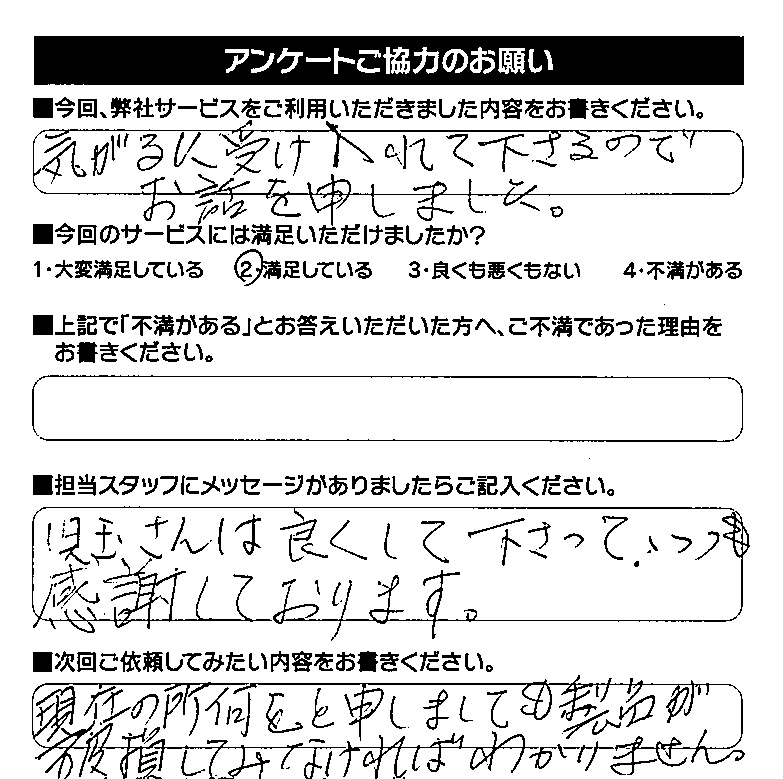 アンケートご協力のお願い
■今回、弊社サービスをご利用いただきました内容をお書きください。
気がるに受け入れて下さるので
お話を申しました。
■今回のサービスには満足いただけましたか?
1・大変満足している 2・満足している 3・良くも悪くもない 4・不満がある
■上記で「不満がある」とお答えいただいた方へ、ご不満であった理由を
お書きください。
■担当スタッフにメッセージがありましたらご記入ください。
児玉さんは良くして下さって、いつも
感謝しております。
■次回ご依頼してみたい内容をお書きください。
現在の所何をと申しましても製品が
破損してみなければわかりません。